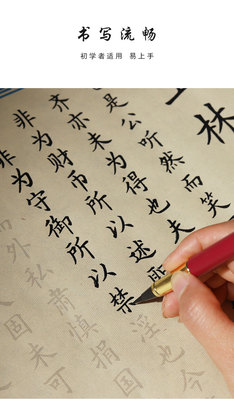 书写流畅
初学者适用 易上手
林
是公听然而笑
齐亦未为得也夫
非为财币所以述
非为守御所以禁淫也
外私肃慎捐国
固未可